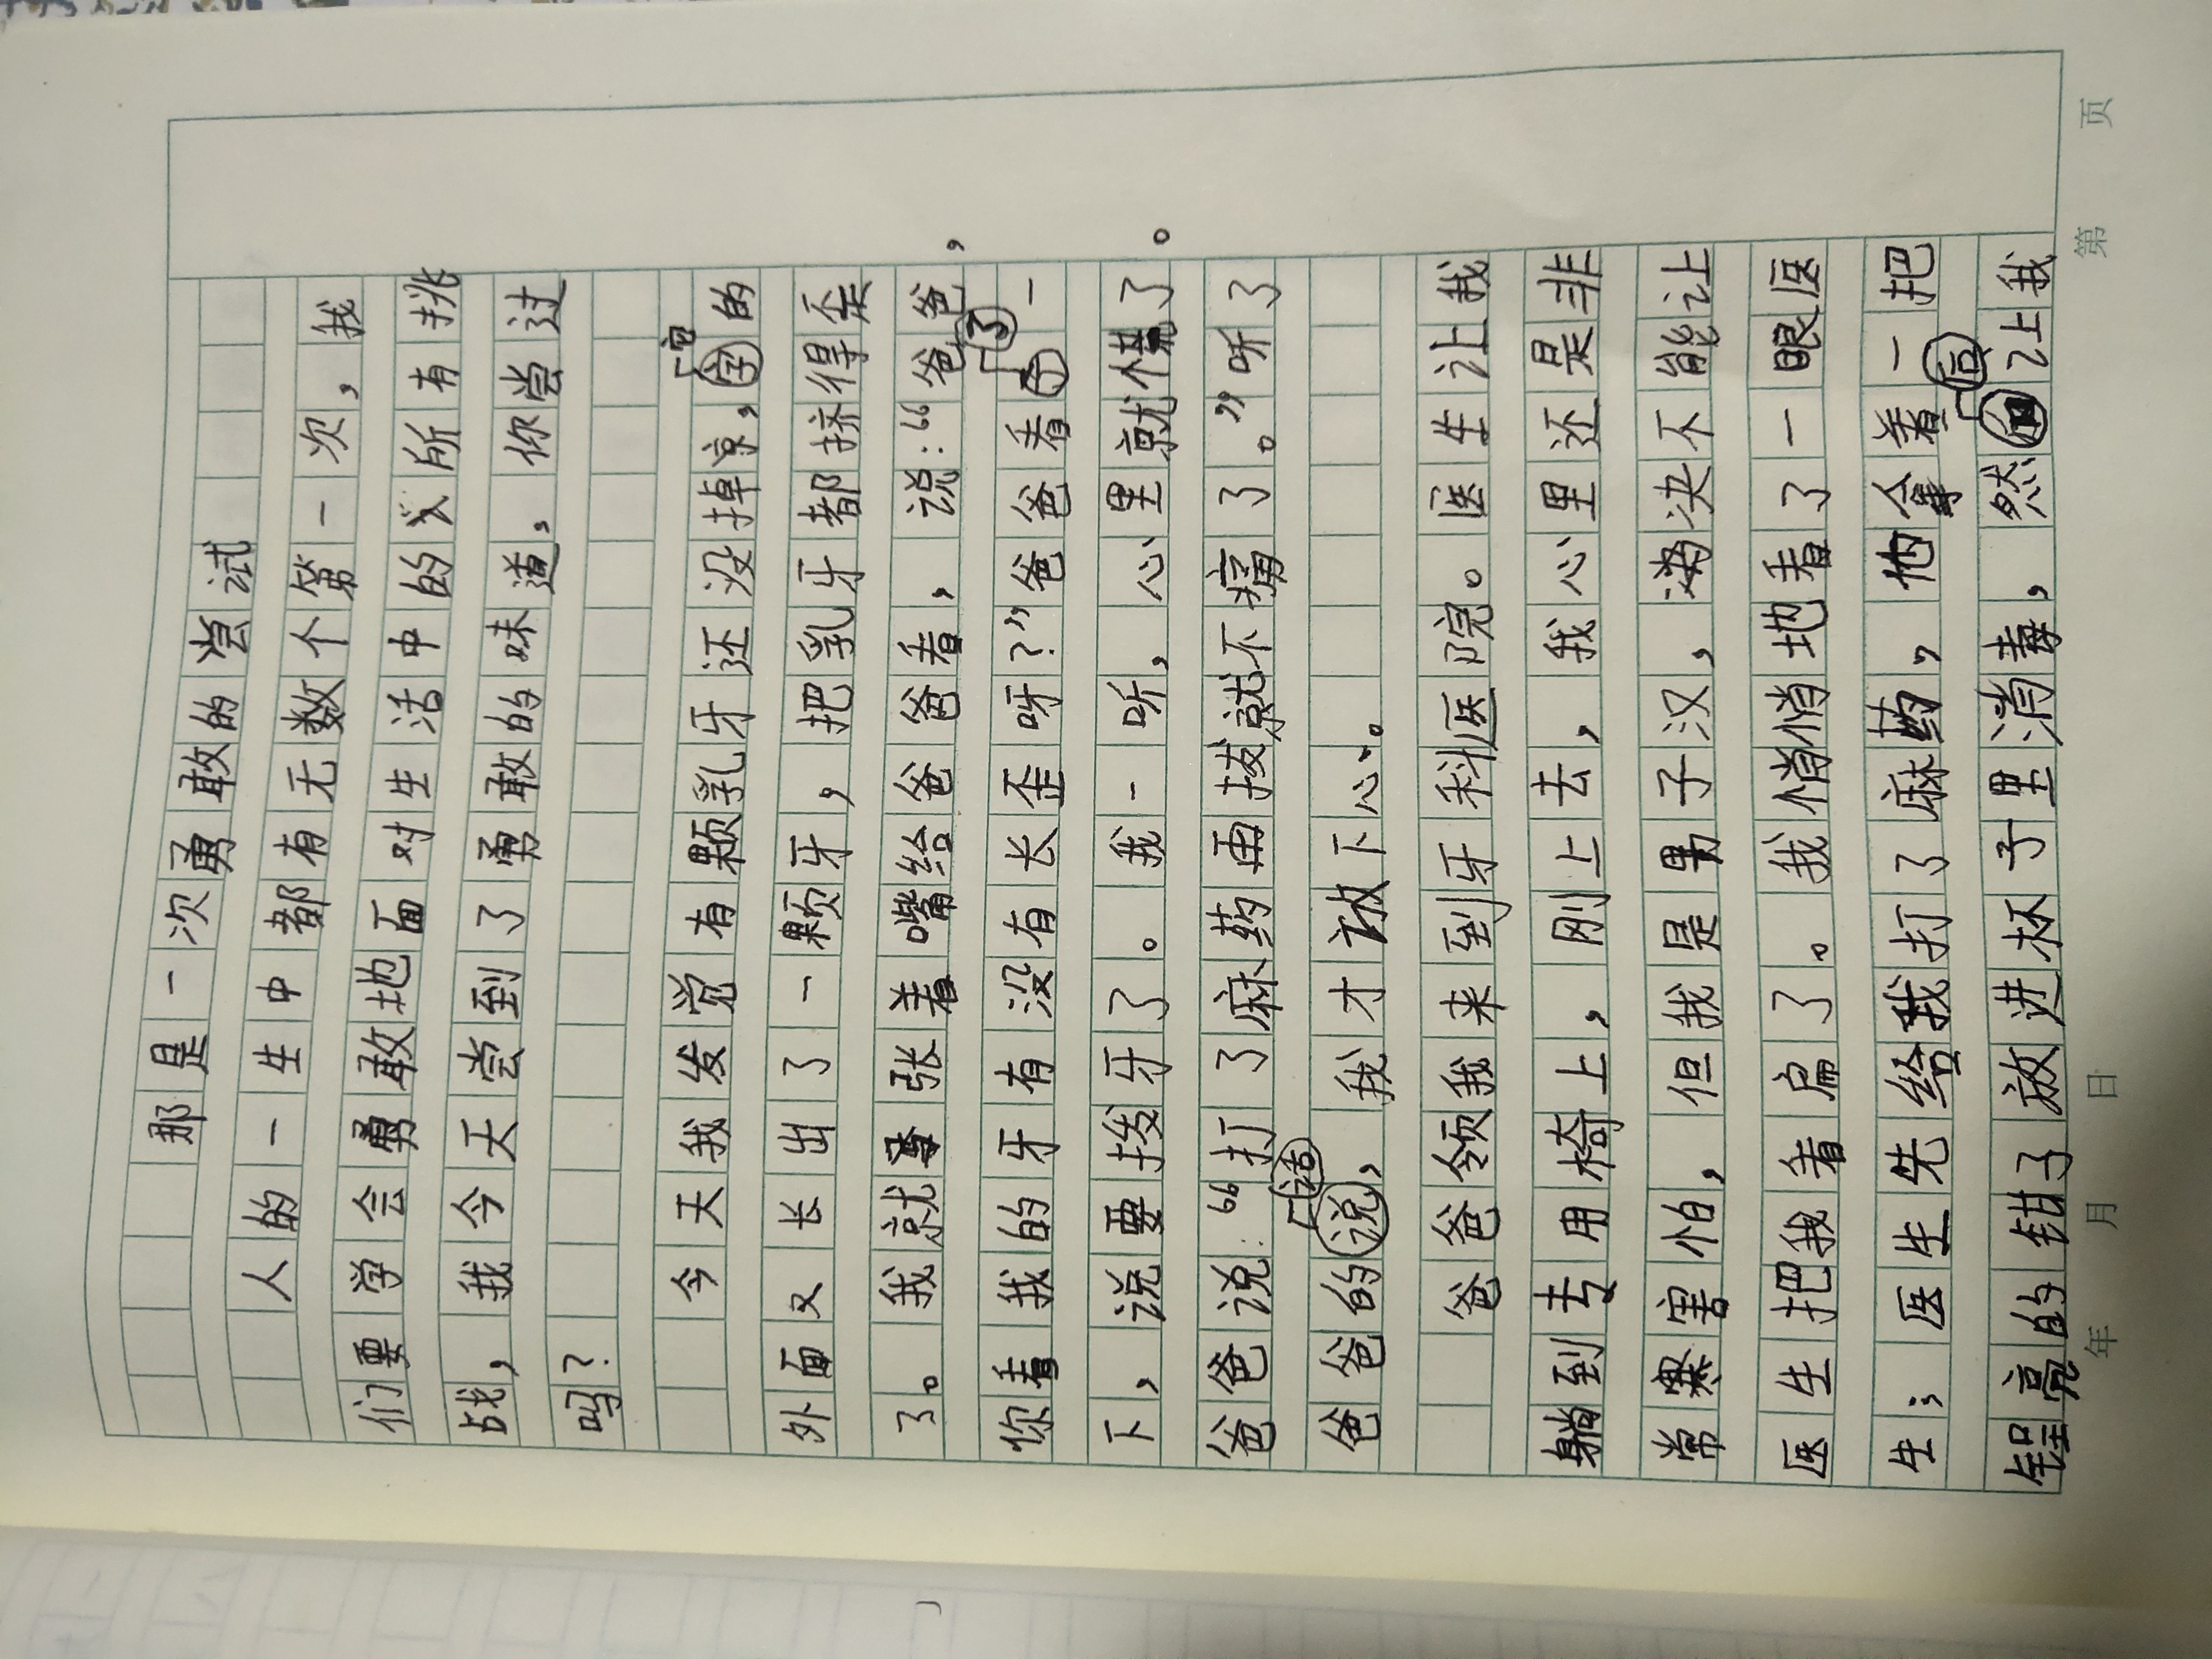 那是一次勇敢的尝试
人的一生中都有无数个第一次，我
们要学会勇敢地面对生活中的所有挑
战，我今天尝到了勇敢的味道，你尝过
吗？
今天我发觉有颗乳牙还没掉，它的
外面又长出了一颗牙，把乳牙都挤得歪
了。我就张着嘴给爸爸看，说：“爸爸，
你看我的牙有没有长歪呀？”爸爸看了一
下，说要拨牙了。我一听，心里就慌了。
爸爸说：“打了麻药再拔就不痛了。”听了
爸爸的话，我才放下心。
爸爸领我来到牙科医院。医生让我
躺到专用椅上，刚上去，我心里还是非
常害怕，但我是男子汉，决不能让
医生把我看扁了。我悄悄地看了一眼医
生；医生先给我打了麻药，他拿着一把
锃亮的钳子放进杯子里消毒，然后让我
年 月 日
第 页